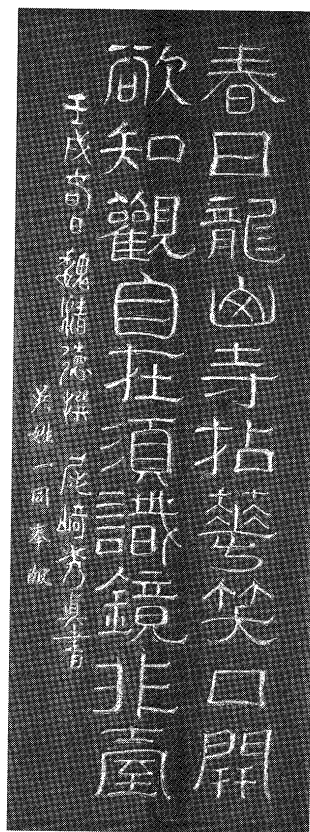 春日龍山寺拈華笑口開
欲知觀自在須識鏡非臺
壬戌日 魏清德撰 尾崎秀真書
吳姓一同奉献